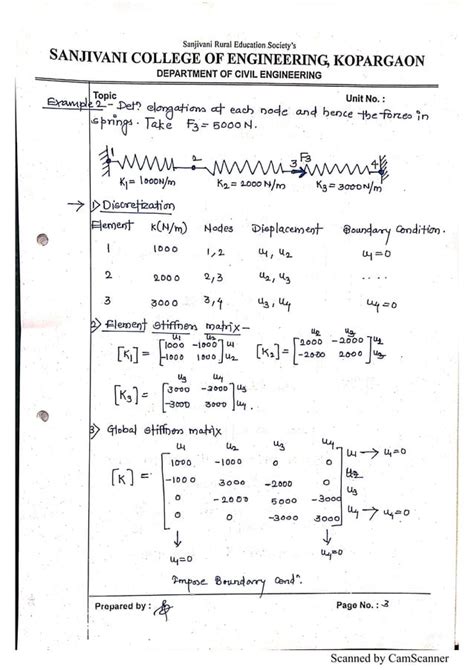 Sanjivani Rural Education Society's
SANJIVANI COLLEGE OF ENGINEERING, KOPARGAON
DEPARTMENT OF CIVIL ENGINEERING
Topic Unit No. :
Example 2 - Detⁿ elongations at each node and hence the forces in
springs. Take F3 = 5000 N.
1 2 3 F3 4
K1 = 1000 N/m K2 = 2000 N/m K3 = 3000 N/m
→ 1) Discretization
Element K(N/m) Nodes Displacement Boundary Condition.
1 1000 1,2 u1, u2 u1=0
2 2000 2,3 u2, u3 ....
3 3000 3,4 u3, u4 u4=0
2) Element stiffness matrix -
u1 u2 u2 u3
[K1] = [1000 -1000] u1 [K2] = [2000 -2000] u2
[-1000 1000] u2 [-2000 2000] u3
u3 u4
[K3] = [3000 -3000] u3
[-3000 3000] u4
3) Global stiffness matrix
u1 u2 u3 u4
1000 -1000 0 0 u1 → u1=0
[K] = -1000 3000 -2000 0 u2
0 -2000 5000 -3000 u3
0 0 -3000 3000 u4 → u4=0
↓ ↓
u1=0 u4=0
Impose Boundary Condⁿ.
Prepared by : Page No. : 3
Scanned by CamScanner